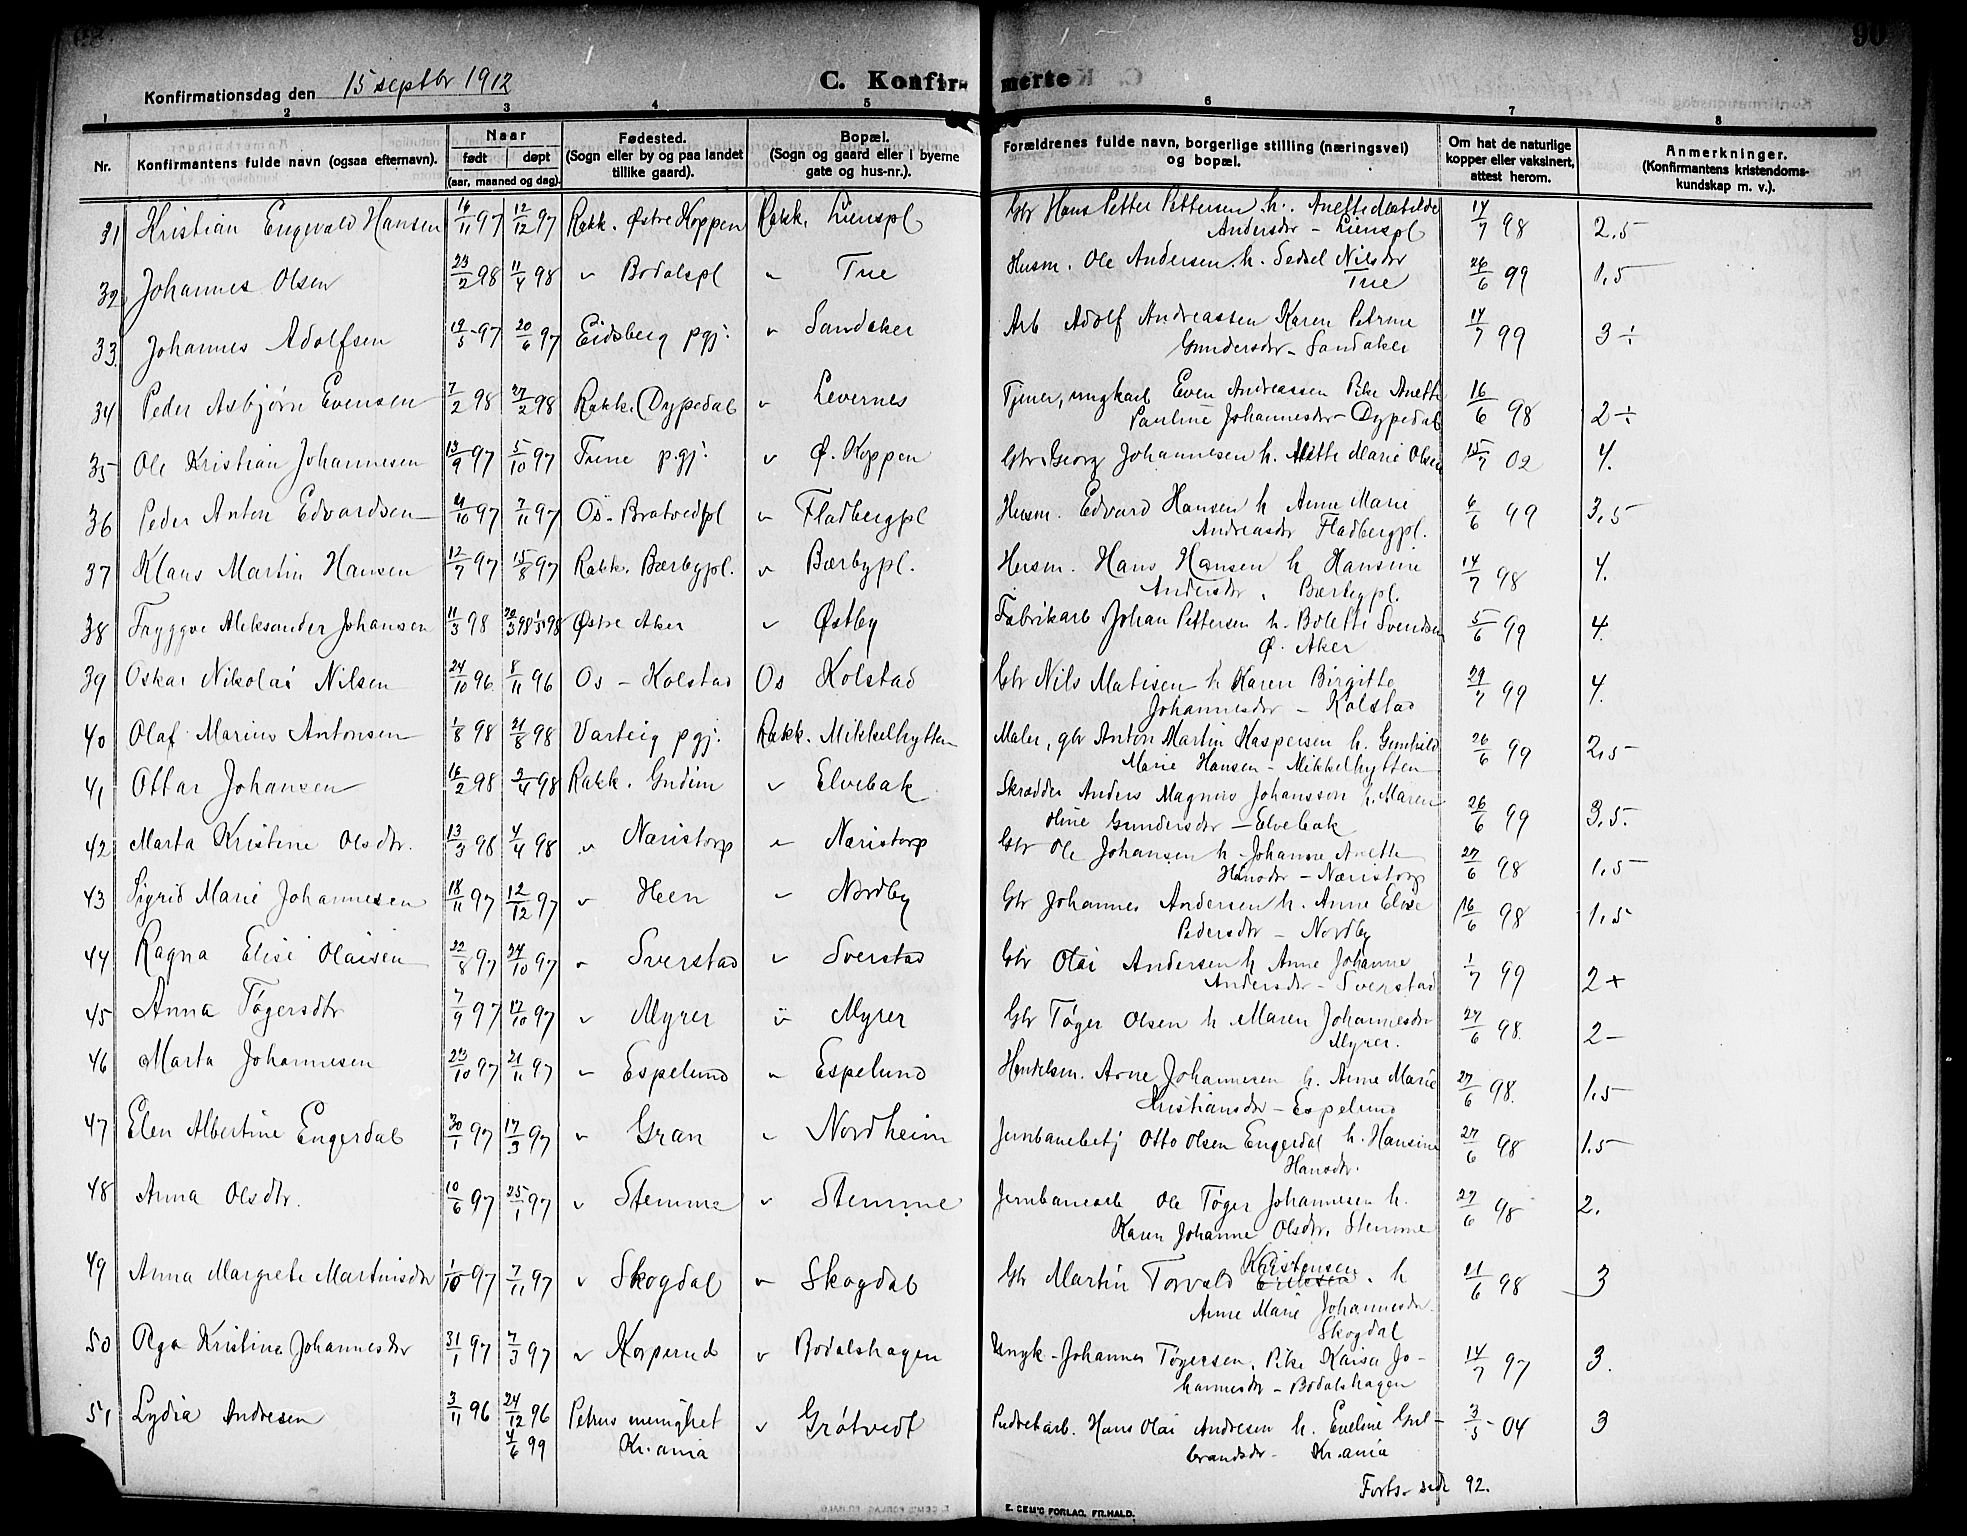 90
Konfirmationsdag den 15 septbr 1912
C. Konfir- merte
1 2 3 4 5 6 7 8
Nr. Konfirmantens fulde navn (ogsaa efternavn). Naar født døpt (aar, maaned og dag). Fødested. (Sogn eller by og paa landet tillike gaard). Bopæl. (Sogn og gaard eller i byerne gate og hus-nr.). Forældrenes fulde navn, borgerlige stilling (næringsvei) og bopæl. Om hat de naturlige kopper eller vaksinert, attest herom. Anmerkninger. (Konfirmantens kristendoms- kundskap m. v.).
31 Kristian Engvald Hansen 16/11 97 12/12 97 Rakk. Østre Koppen Rakk. Lienspl Gbr Hans Petter Pettersen h. Anette Matilde 14/7 98 2.5
Andersdr - Lienspl
32 Johannes Olsen 23/2 98 11/4 98 " Bodalspl " Tue Husm. Ole Andersen h. Sedsel Nilsdr 26/6 99 1,5
Tue
33 Johannes Adolfsen 19/5 97 20/6 97 Eidsberg pgj. " Sandaker Arb Adolf Andreassen Karen Petrine 14/7 99 3 ÷
Gundersdr - Sandaker
34 Peder Asbjørn Evensen 7/2 98 27/2 98 Rakk. (Dypedal " Levernes Tjener, ungkarl Even Andreassen Pike Anette 16/6 98 2 ÷
Pauline Johannesdr - Dypedal
35 Ole Kristian Johannesen 13/9 97 5/10 97 Tune pgj. " Ø. Koppen Gbr Georg Johannesen h. Mitte Marie Olsen 15/7 02 4.
36 Peder Anton Edvardsen 4/10 97 7/11 97 Os - Bratvedpl " Fladbergpl Husm. Edvard Hansen h Anne Marie 6/6 99 3,5
Andreasdr Fladbergpl.
37 Klaus Martin Hansen 12/7 97 15/8 97 Rakk. Bærbypl. " Bærbypl. Husm. Hans Hansen h Hansine 14/7 98 4.
Andersdr, Bærbypl.
38 Tryggve Aleksander Johansen 11/3 98 20/3 98 1/5 98 Østre Aker " Østby Fabrikarb Johan Pettersen h. Bolette Svendsen 5/6 99 4.
Ø. Aker
39 Oskar Nikolai Nilsen 24/10 96 8/11 96 Os - Kolstad Os Kolstad Gbr Nils Matisen h Karen Birgitte 29/7 99 4.
Johannesdr - Kolstad
40 Olaf Marius Antonsen 1/8 98 21/8 98 Varteig pgj. Rakk. Mikkelhytten Maler, gbr Anton Martin Kaspersen h. Gunhild 26/6 99 2,5
Marie Hansen - Mikkelhytten
41 Ottar Johansen 16/2 98 3/4 98 Rakk. Gudim " Elvebak Skrædder Anders Magnus Johansson h. Maren 26/6 99 3,5.
Oline Gundersdr - Elvebak
42 Marta Kristine Olsdtr. 13/3 98 4/4 98 " Næristorp " Næristorp Gbr Ole Johansen h - Johanne Anette 27/6 98 1.5
Hansdr - Næristorp
43 Sigrid Marie Johannesen 18/11 97 12/12 97 " Heen " Nordby Gbr Johannes Andersen h. Anne Elise 16/6 98 1.5
Pedersdr - Nordby
44 Ragna Elise Olaisen 22/8 97 24/10 97 " Sverstad " Sverstad Gbr Olai Andersen h Anne Johanne 1/7 99 2 +
Andersdr - Sverstad
45 Anna Tøgersdtr 7/9 97 17/10 97 " Myrer " Myrer Gbr Tøger Olsen h Maren Johannesdr 27/6 98. 2 -
Myrer.
46 Marta Johannesen 23/10 97 21/11 97 " Espelund " Espelund Handelsm. Arne Johannesen h. Anne Marie 27/6 98. 1.5
Kristiansdr - Espelund
47 Elen Albertine Engerdal 30/1 97 17/3 97 " Gran " Nordheim Jernbanebetj Otto Olsen Engerdal h. Hansine 27/6 98 1.5
Hansdr.
48 Anna Olsdtr. 10/6 97 25/1 97 " Stemme " Stemme Jernbanearb Ole Tøger Johannesen h. 27/6 98 2.
Karen Johanne Olsdtr, Stemme
49 Anna Margrete Martinsdr 1/10 97 7/11 97 " Skogdal " Skogdal Gbr Martin Torvald Eriksen Kristensen. h 21/6 98 3
Anne Marie Johannesdr
Skogdal
50 Aga Kristine Johannesdr 31/1 97 7/3 97 " Korperud " Bodalshagen Ungk - Johannes Tøgersen, Pike Kaisa Jo- 14/7 97 3.
hannesdr - Bodalshagen
51 Lydia Andresen 3/11 96 24/12 96 Petrus menighet " Grøtvedt Pudretarb. Hans Olai Andresen h. Eveline Gul- 3/5 04 3
4/6 99 Kr.ania brandsdr - Kr.ania
Forts. side 92.
E. CEM'S FORLAG, FR.HALD.